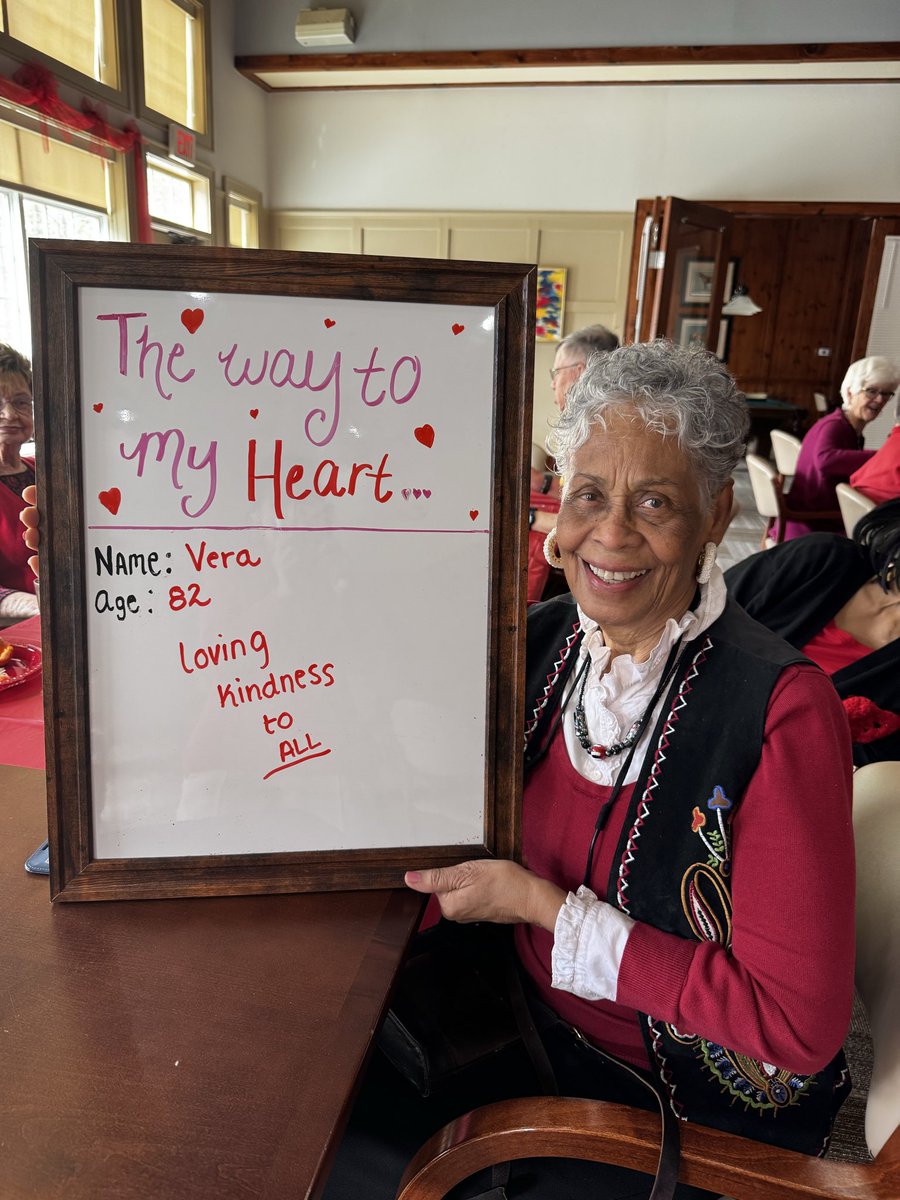 EXIT
The way to
my Heart...
Name: Vera
Age: 82
Loving
Kindness
to
ALL